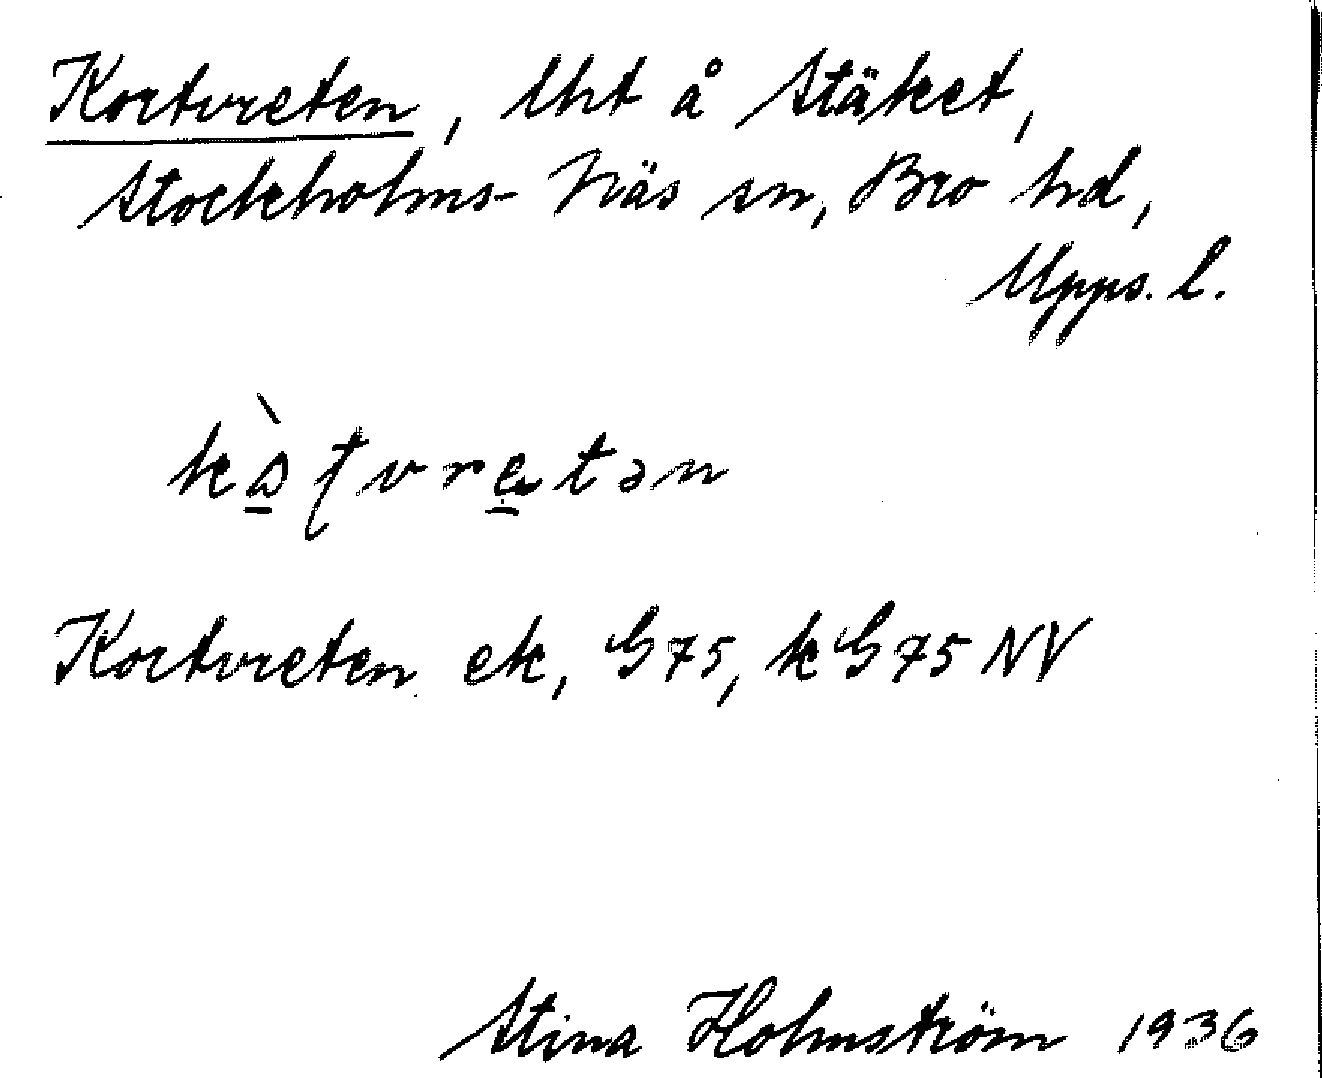 Kortvreten, lht å Stäket,
Stockholms-Näs sn, Bro hd,
Upps. l.
kòʈvretən
Kortvreten ek, G75, kG75NV
Stina Holmström 1936